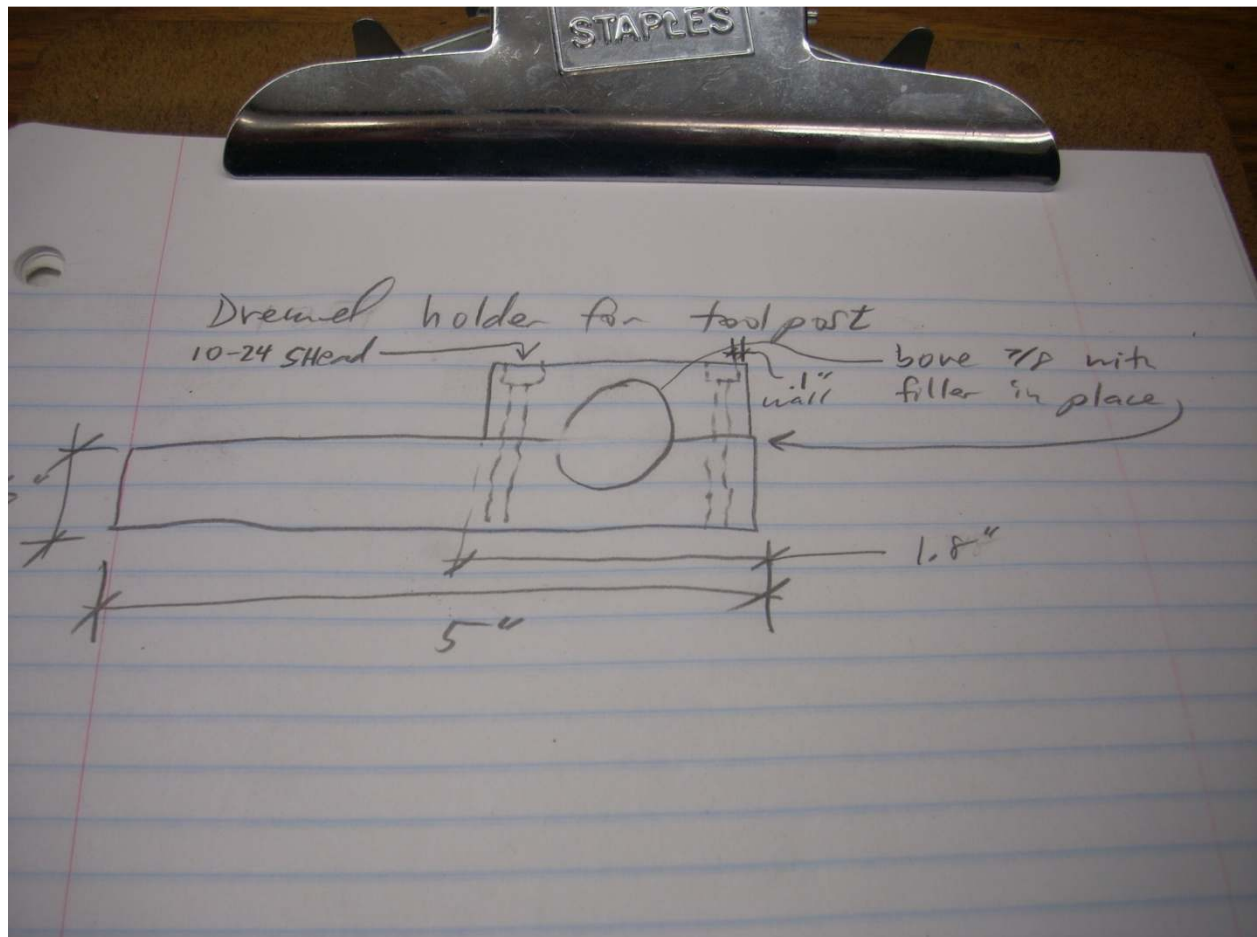 STAPLES
Dremel holder for toolpost
10-24 SHead
bore 7/8 with
filler in place
.1"
wall
1.8"
5"